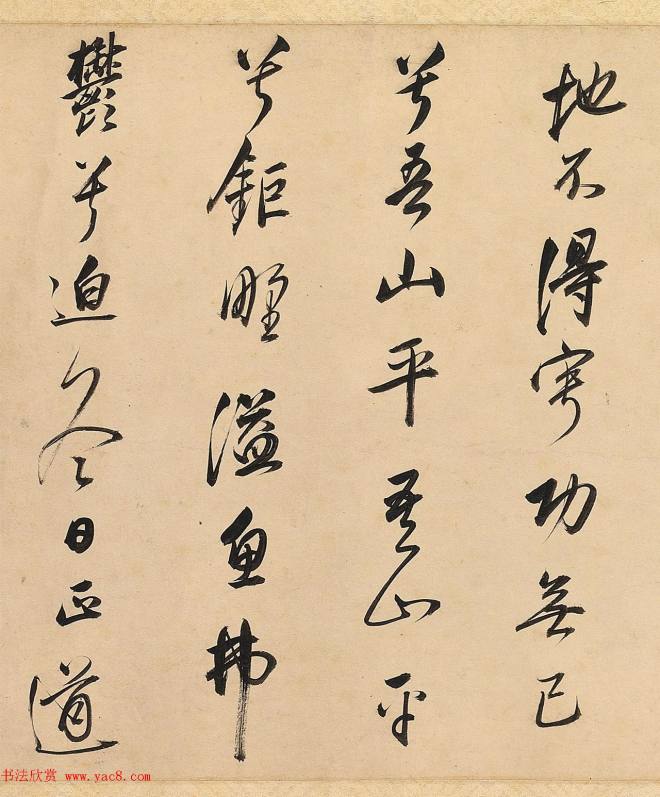 地不得寧功無已
兮吾山平吾山平
兮鉅野溢魚弗
鬱兮迫冬日正道
书法欣赏 www.yac8.com